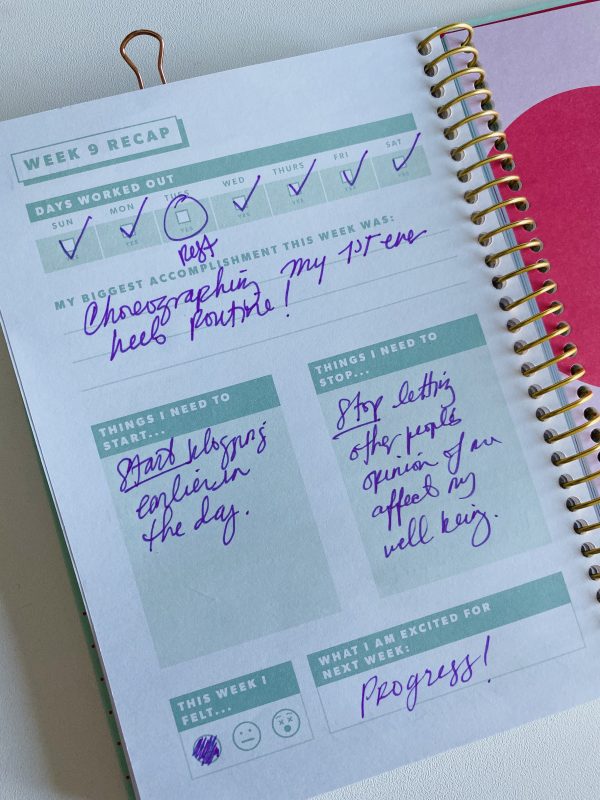 WEEK 9 RECAP
DAYS WORKED OUT
SUN MON TUES WED THURS FRI SAT
YES YES YES YES YES YES
Rest
MY BIGGEST ACCOMPLISHMENT THIS WEEK WAS:
Choreographing my 1st ever
heels Routine!
THINGS I NEED TO
START...
Start blogging
earlier in
the day.
THINGS I NEED TO
STOP...
Stop letting
other peoples
opinion of me
affect my
well being.
THIS WEEK I
FELT...
WHAT I AM EXCITED FOR
NEXT WEEK:
Progress!